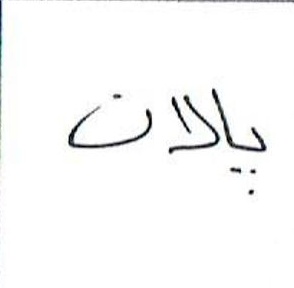 پلان